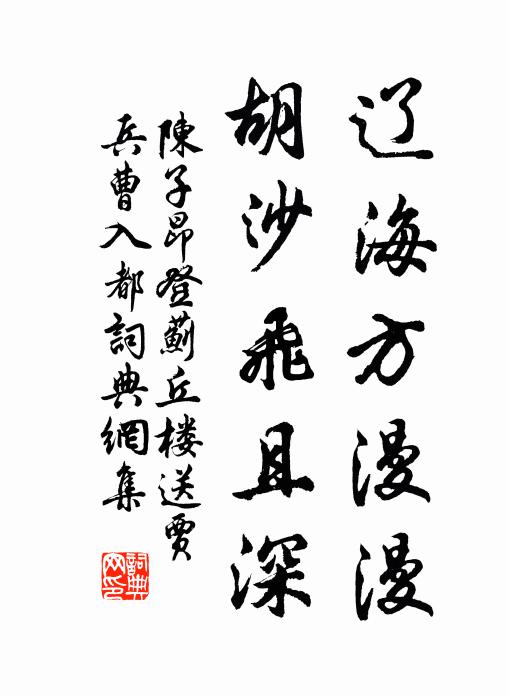 辽海方漫漫
胡沙飛且深
陳子昂登薊丘楼送賈
兵曹入都詞典網集
詞典
网印